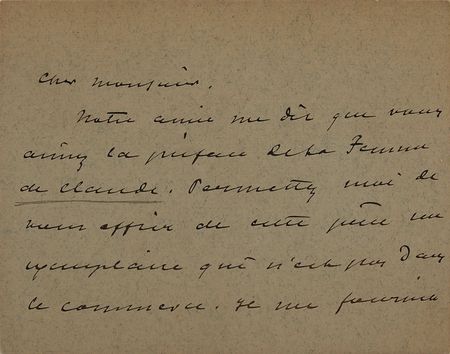 Cher Monsieur.
Notre amie me dit que vous
aimez la préface de la Femme
de Claude. Permettez moi de
vous offrir de cette pièce un
exemplaire qui n'est pas dans
le commerce. Je me